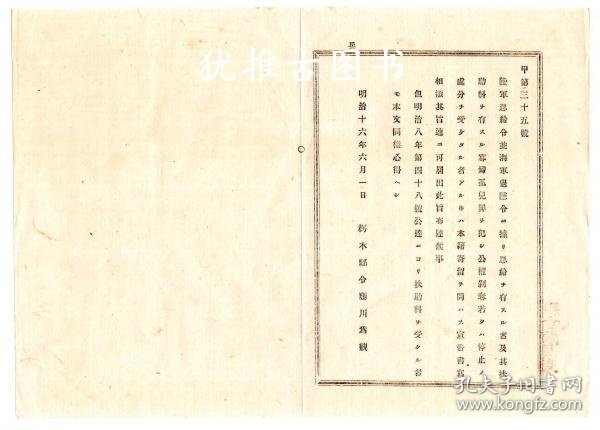 兵
甲第三十五號
陸軍恩給令並海軍恩給令ニ據リ恩給ヲ有スル者及其扶
助料ヲ有スル寡婦孤兒罪ヲ犯シ公權剝奪若クハ停止ノ
處分ヲ受ケタル者アルトキハ本籍寄留ヲ問ハス宣告書寫
相添其旨速ニ可届出此旨布達候事
但明治八年第四十八號公達ニヨリ扶助料ヲ受クル者
モ本文同樣心得ヘシ
明治十六年六月一日
栃木縣令藤川爲親
犹推古图书
孔夫子旧书网
www.kongfz.com